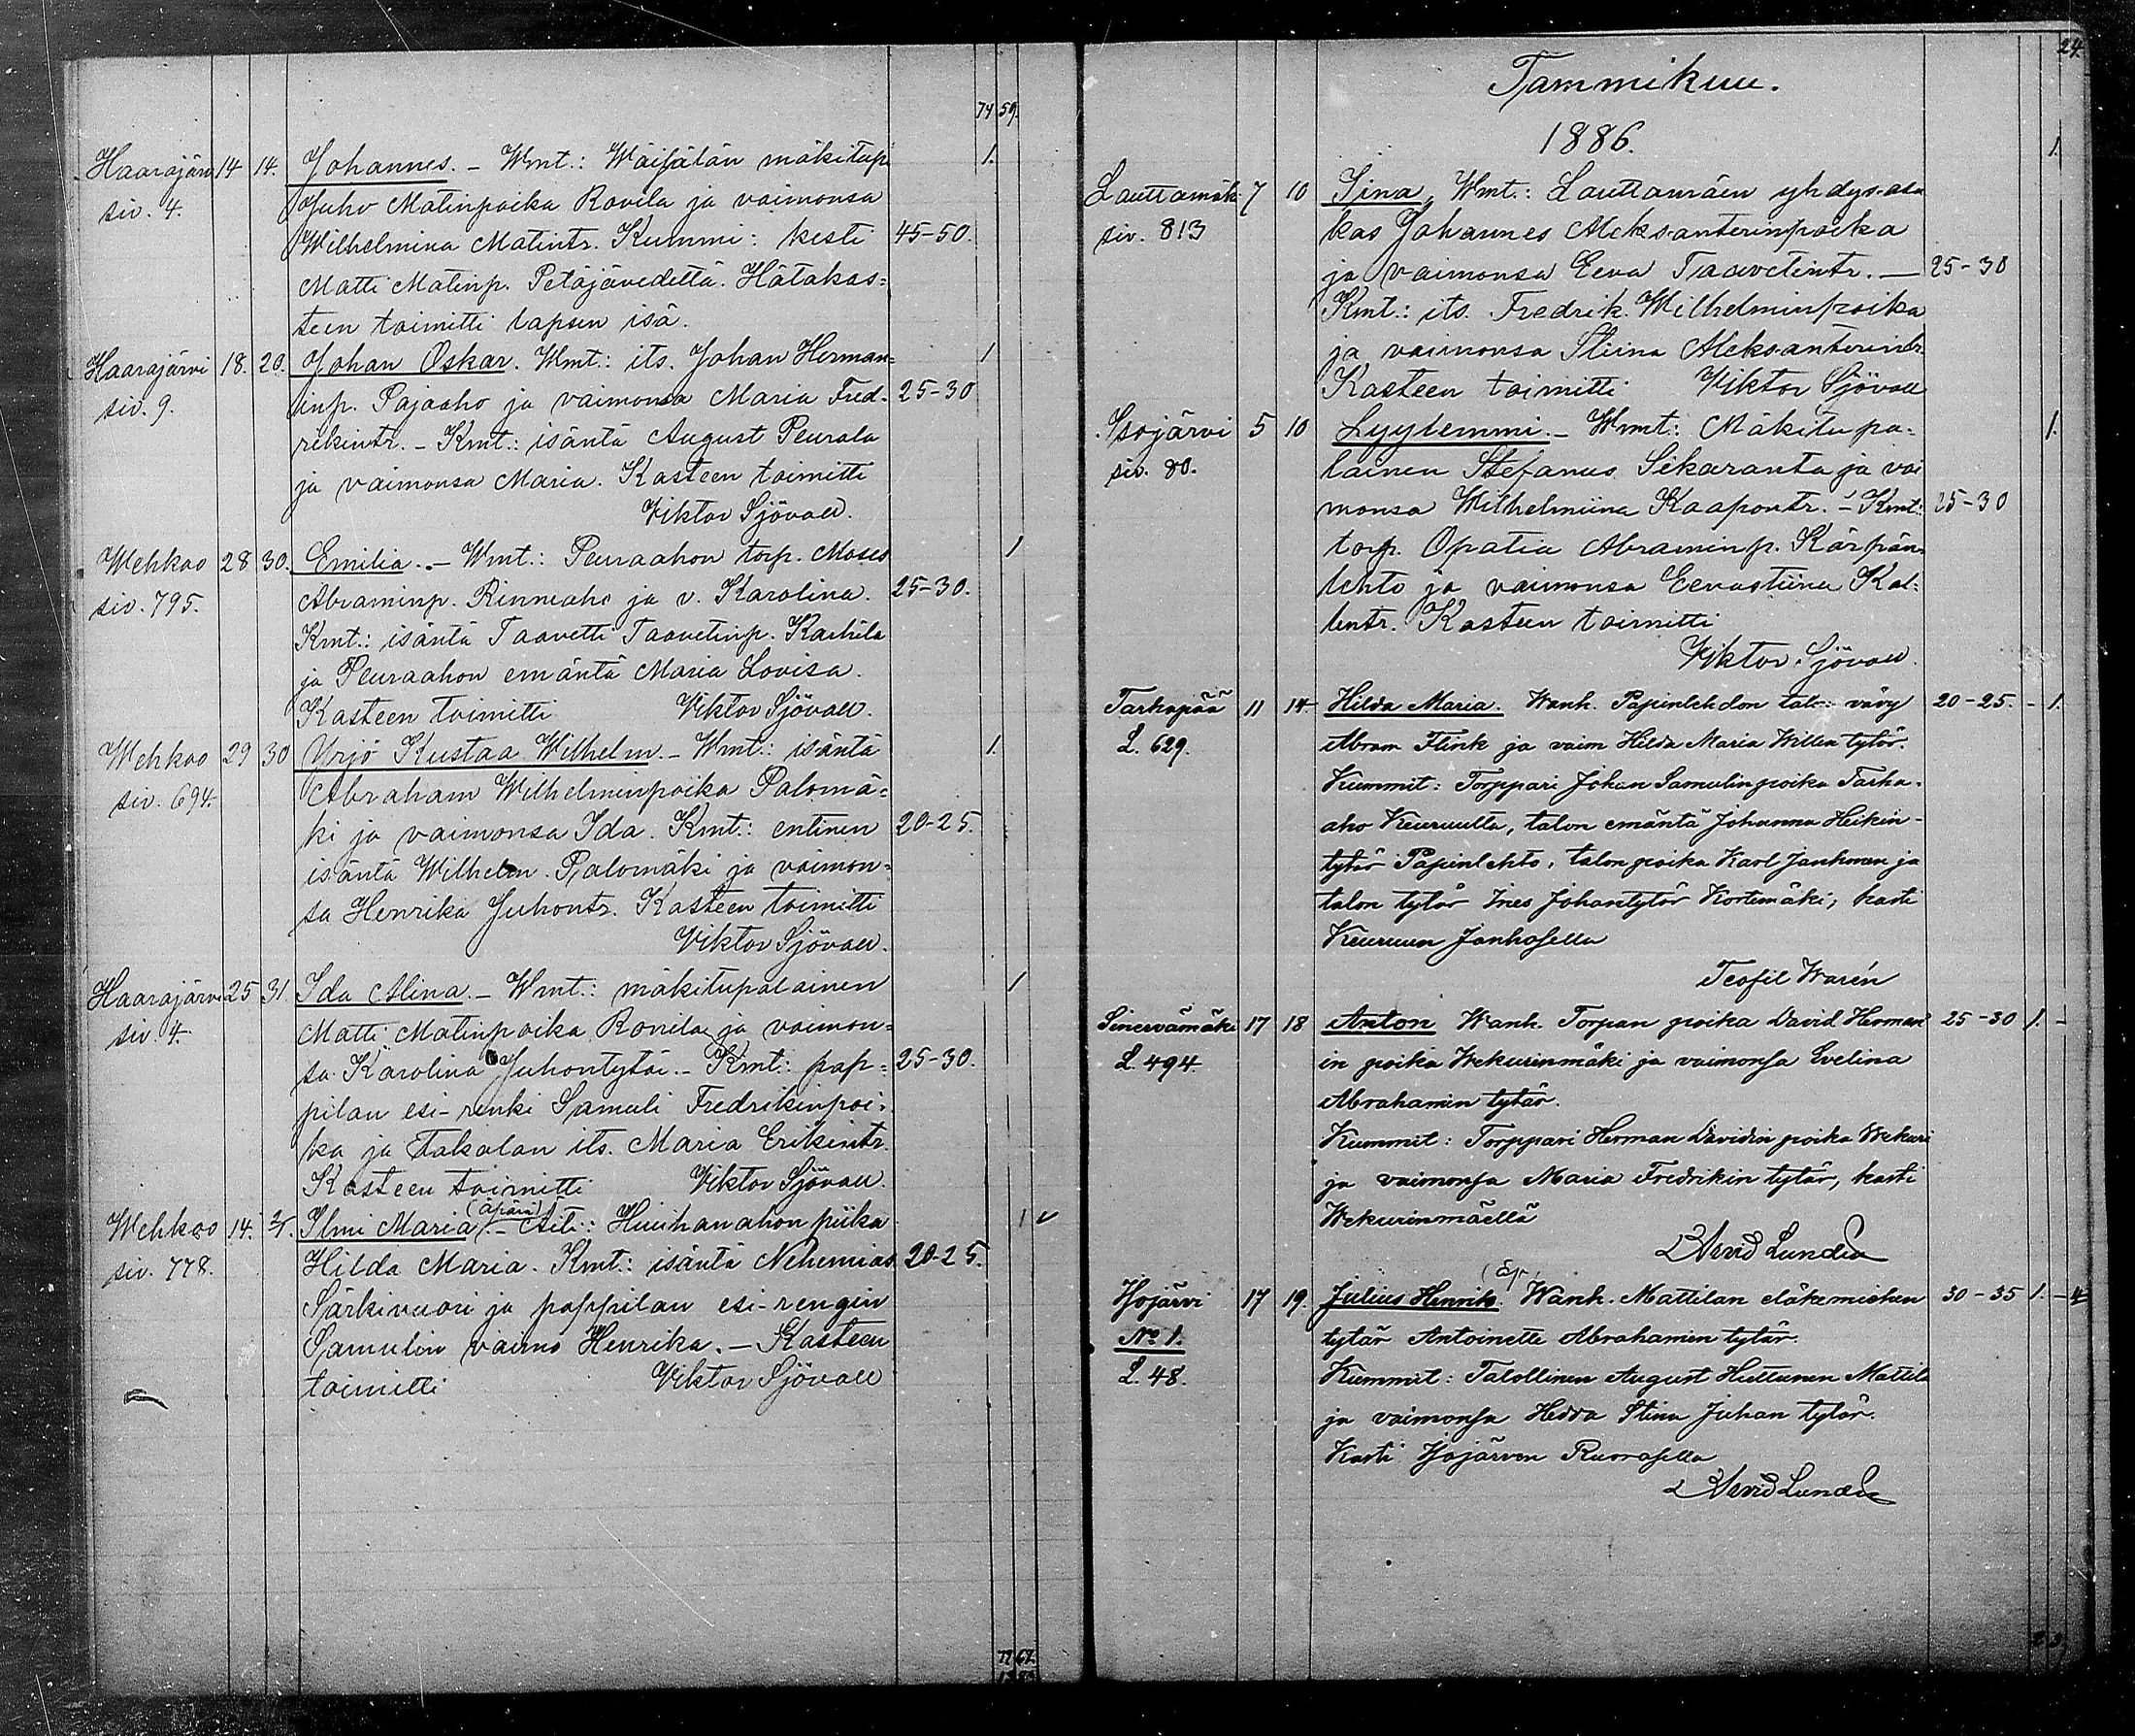 74 59.
Haarajärvi 14 14. Johannes. – Wmt.: Wäisälän mäkitup. 1.
siv. 4. Juho Matinpoika Rovila ja vaimonsa
Wilhelmina Matintr. Kummi: kesti 45-50.
Matti Matinp. Petäjävedeltä. Hätäkas=
teen toimitti lapsen isä.
Haarajärvi 18. 20. Johan Oskar. Wmt.: its. Johan Herman= 1
siv. 9. inp. Pajaaho ja vaimonsa Maria Fred- 25-30
rikintr. – Kmt.: isäntä August Peurala
ja vaimonsa Maria. Kasteen toimitti
Viktor Sjövall.
Wehkoo 28 30. Emilia. – Wmt.: Peuraahon torp. Moses 1
siv. 795. Abraminp. Rinneaho ja v. Karolina. 25-30.
Kmt.: isäntä Taavetti Taavetinp. Karhila
ja Peuraahon emäntä Maria Lovisa.
Kasteen toimitti Viktor Sjövall.
Wehkoo 29 30 Yrjö Kustaa Wilhelm. – Wmt.: isäntä 1.
siv. 694. Abraham Wilhelminpoika Palomä=
ki ja vaimonsa Ida. Kmt.: entinen 20-25.
isäntä Wilhelm Palomäki ja vaimon=
sa Henrika Juhontr. Kasteen toimitti
Viktor Sjövall.
Haarajärvi 25 31. Ida Alina. – Wmt.: mäkitupalainen 1
siv. 4. Matti Matinpoika Rovila ja vaimon=
sa Karolina Juhontytär. – Kmt.: pap= 25-30.
pilan esi-renki Samuli Fredrikinpoi=
ka ja Takalan its. Maria Erikintr.
Kasteen toimitti Viktor Sjövall.
Wehkoo 14. 31. Ilmi Maria (äpärä). – Äiti: Huuhanahon piika 1 v
siv. 778. Hilda Maria. Kmt.: isäntä Nehemias 20-25.
Särkivuori ja pappilan esi-rengin
Samulin vaimo Henrika. – Kasteen
toimitti Viktor Sjövall
77 67.
24.
Tammikuu.
1886.
1.
Lauttamäki 7 10 Sina, Wmt.: Lauttamäen yhdys-asu
siv. 813 kas Johannes Aleksanterinpoika
ja vaimonsa Eeva Taavetintr. – 25-30
Kmt.: its. Fredrik Wilhelminpoika
ja vaimonsa Stiina Aleksanterintr.
Kasteen toimitti Viktor Sjövall
Isojärvi 5 10 Lyylemmi. – Wmt.: Mäkitupa- 1.
siv. 80. lainen Stefanus Sikaranta ja vai
monsa Wilhelmiina Kaapontr. – Kmt: 25-30
torp. Opatia Abraminp. Kärpän-
lehto ja vaimonsa Eevastiina Kal-
lentr. Kasteen toimitti
Viktor Sjövall.
Tarhapää 11 14 Hilda Maria. Wanh. Papinlehdon talon vävy 20-25. – 1.
L. 629. Abram Flink ja vaim Hilda Maria Willen tytör.
Kummit: Torppari Johan Samulinpoika Tarha-
aho Keuruulta, talon emäntä Johanna Heikin-
tytär Papinlehto, talon poika Karl Janhonen ja
talon tytär Ines Johantytär Kortemäki; kasti
Keuruun Janhosella
Teofil Warén
Sinervämäki 17 18 Anton Wanh. Torpan poika David Herman 25-30 1. –
L. 494. in poika Wekurinmäki ja vaimonsa Evelina
Abrahamin tytär.
Kummit: Torppari Herman Davidin poika Wekuri
ja vaimonsa Maria Fredrikin tytär, kasti
Wekurinmäellä
Arvid Lundén
Isojärvi 17 19. Julius Henrik. (äp) Wanh. Mattilan eläkemiehen 30-35 1. – 4
No 1. tytär Antoinette Abrahamin tytär.
L. 48. Kummit: Talollinen August Huttunen Mattila
ja vaimonsa Hedda Stina Juhan tytär.
Kasti Isojärven Ruorasella
Arvid Lundén
2 3